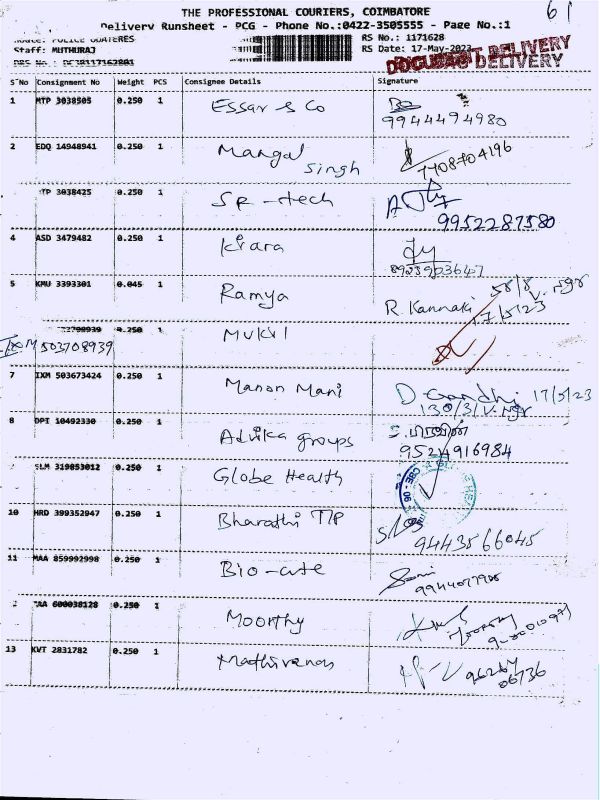 61
THE PROFESSIONAL COURIERS, COIMBATORE
Delivery Runsheet - PCG - Phone No.:0422-3505555 - Page No.:1
Route: POLICE QUATERES RS No.: 1171628
Staff: MUTHURAJ RS Date: 17-May-2023
DRS No.: PCGB117162801 DELIVERY
S No Consignment No Weight PCS Consignee Details Signature
1 MTP 3038505 0.250 1 Essar & Co
9944494980
2 EDQ 14948941 0.250 1 Mangal Singh 7708704196
TP 3038425 0.250 1 SR-tech
9952287580
4 ASD 3479482 0.250 1 Kirara
5 KMU 3393301 0.045 1 Ramya R. Kannaki 58/8 V. Ngr
17/5/23
0.250 1 Mukil
IXM 503708939
7 IXM 503673424 0.250 1 Manon Mani D. Gandhi 17/5/23
130/3/V.Ngr
8 DPI 10492330 0.250 1 Advika groups
9524916984
SLM 319853012 0.250 1 Globe Health
CBE - 06
10 HRD 399352947 0.250 1 Bharathi TTP
9443566045
11 MAA 859992998 0.250 1 Bio-cute
MAA 600038128 0.250 1 Moorthy
13 KWT 2831782 0.250 1 Mathivanan
9626406736